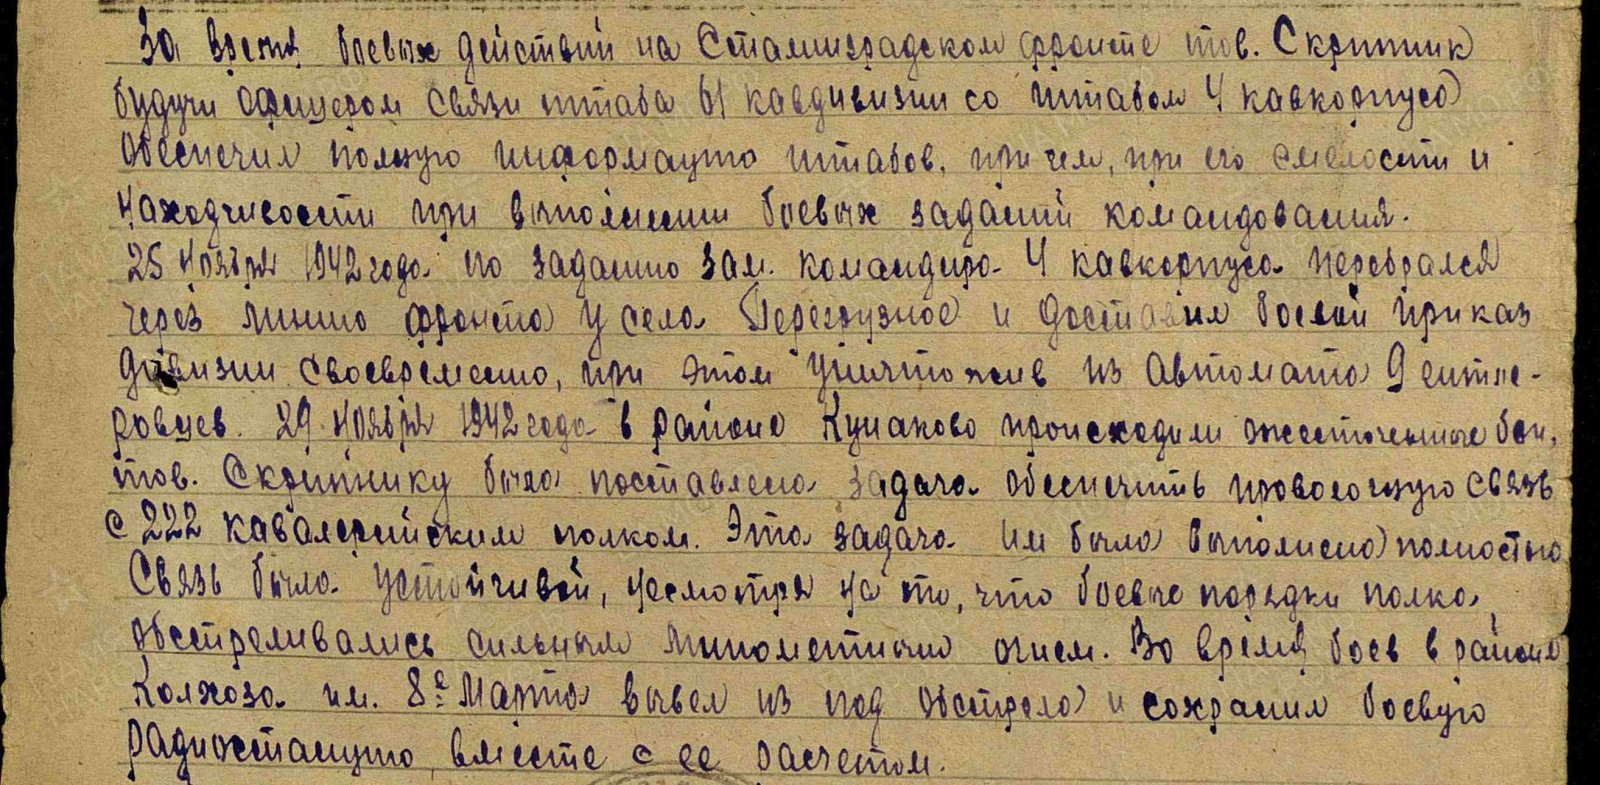 За время боевых действий на Сталинградском фронте тов. Скрипник
будучи офицером связи штаба 61 кавдивизии со штабом 4 кавкорпуса
обеспечил полную информацию штабов, при чем, при его смелости и
находчивости при выполнении боевых заданий командования.
25 ноября 1942 года по заданию зам. командира 4 кавкорпуса перебрался
через линию фронта у села Перегрузное и доставил боевой приказ
дивизии своевременно, при этом уничтожив из автомата 9 гитле-
ровцев. 29 ноября 1942 года в районе Кунаково происходили ожесточенные бои,
тов. Скрипнику была поставлена задача обеспечить проволочную связь
с 222 кавалерийским полком. Эта задача им была выполнена полностью
Связь была устойчивой, несмотря на то, что боевые порядки полка
обстреливались сильным минометным огнем. Во время боев в районе
Колхоза им. 8е Марта вывел из под обстрела и сохранил боевую
радиостанцию вместе с ее расчетом.